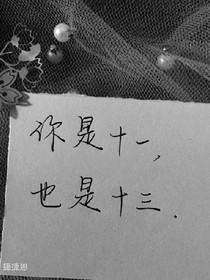 你是十一,
也是十三.